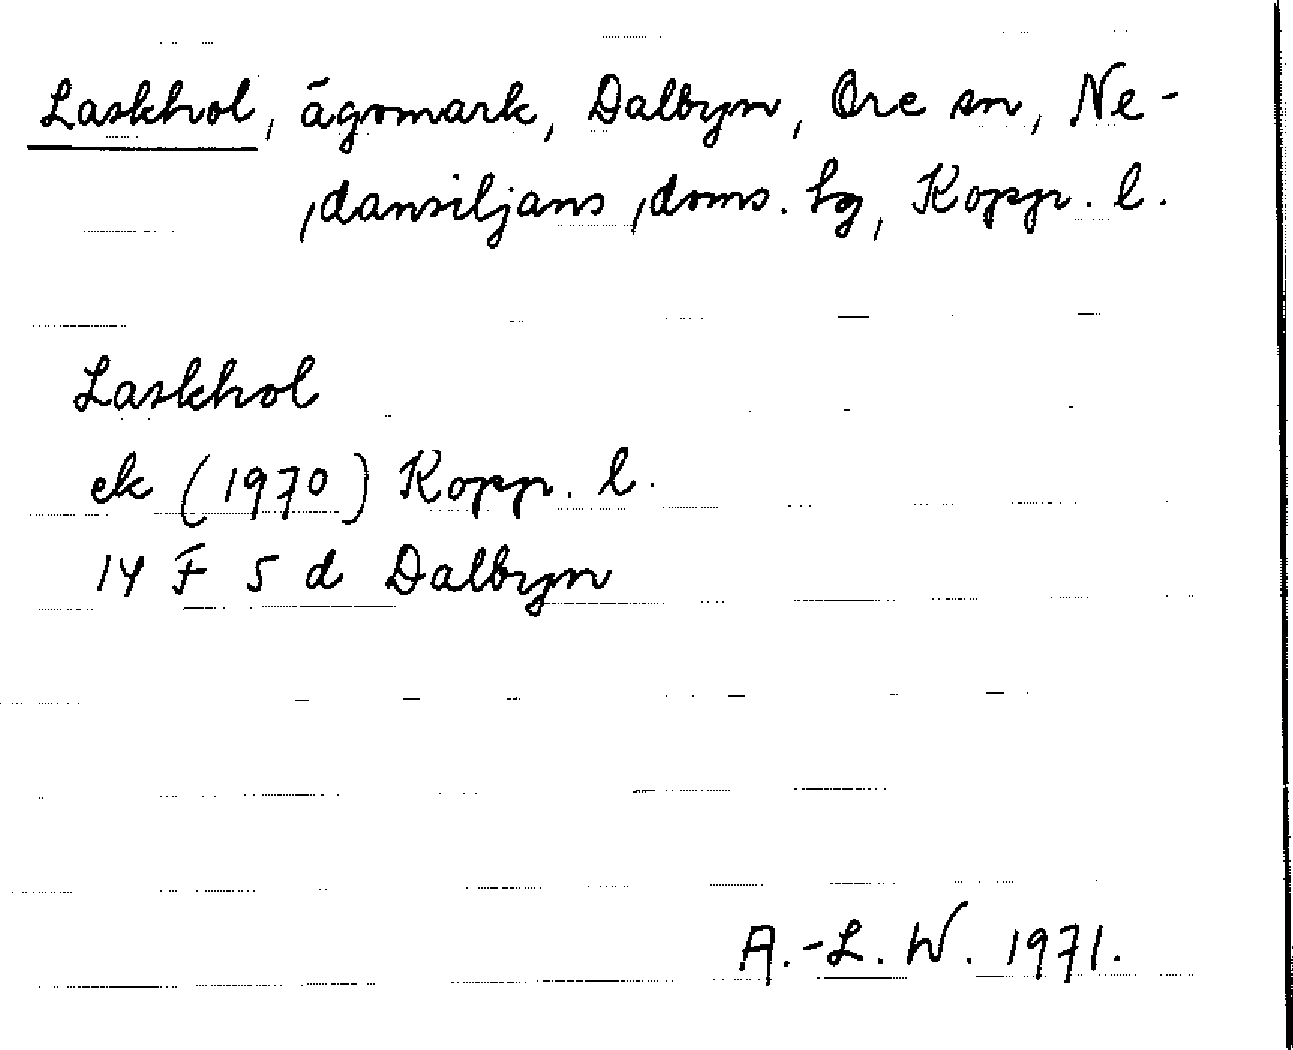 Laskhol, ägomark, Dalbyn, Ore sn, Ne-
dansiljans doms. hg, Kopp. l.
Laskhol
ek (1970) Kopp. l.
14 F 5 d Dalbyn
A.-L. W. 1971.